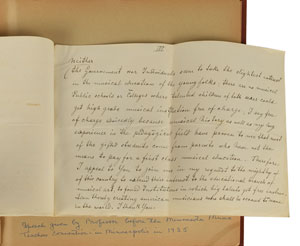 III
Neither
the Government nor Individuals seem to take the slightest interest
in the musical education of the young folks. There are no musical
Public schools or Colleges where talented children of both sexes could
get high grade musical instruction free of charge. I say free
of charge sincerely because musical history as well as my long
experience in the pedagogical field have proven to me that most
of the gifted students come from parents who have not the
means to pay for a first class musical education. Therefore,
I appeal to you to join me in my regard to the
of this country to extend their interest to the educational branch of
musical art, to found Institutions in which big talents get free instruction,
thereby creating American musicians who shall be second to none
in the world. I thank you!
Speech given by Professor before the Minnesota Music
Teacher Convention in Minneapolis in 1925